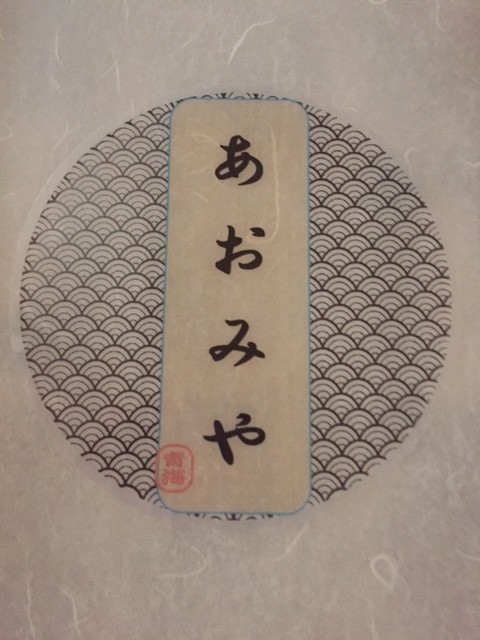 あおみや
青海